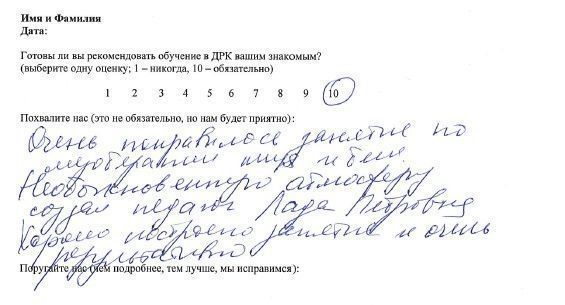 Имя и Фамилия
Дата:
Готовы ли вы рекомендовать обучение в ДРК вашим знакомым?
(выберите одну оценку; 1 – никогда, 10 – обязательно)
1 2 3 4 5 6 7 8 9 10
Похвалите нас (это не обязательно, но нам будет приятно):
Очень понравилось занятие по
Необыкновенную атмосферу
создал педагог Лада Петровна
Хорошо построено занятие и очень
результативно
Поругайте нас (чем подробнее, тем лучше, мы исправимся):